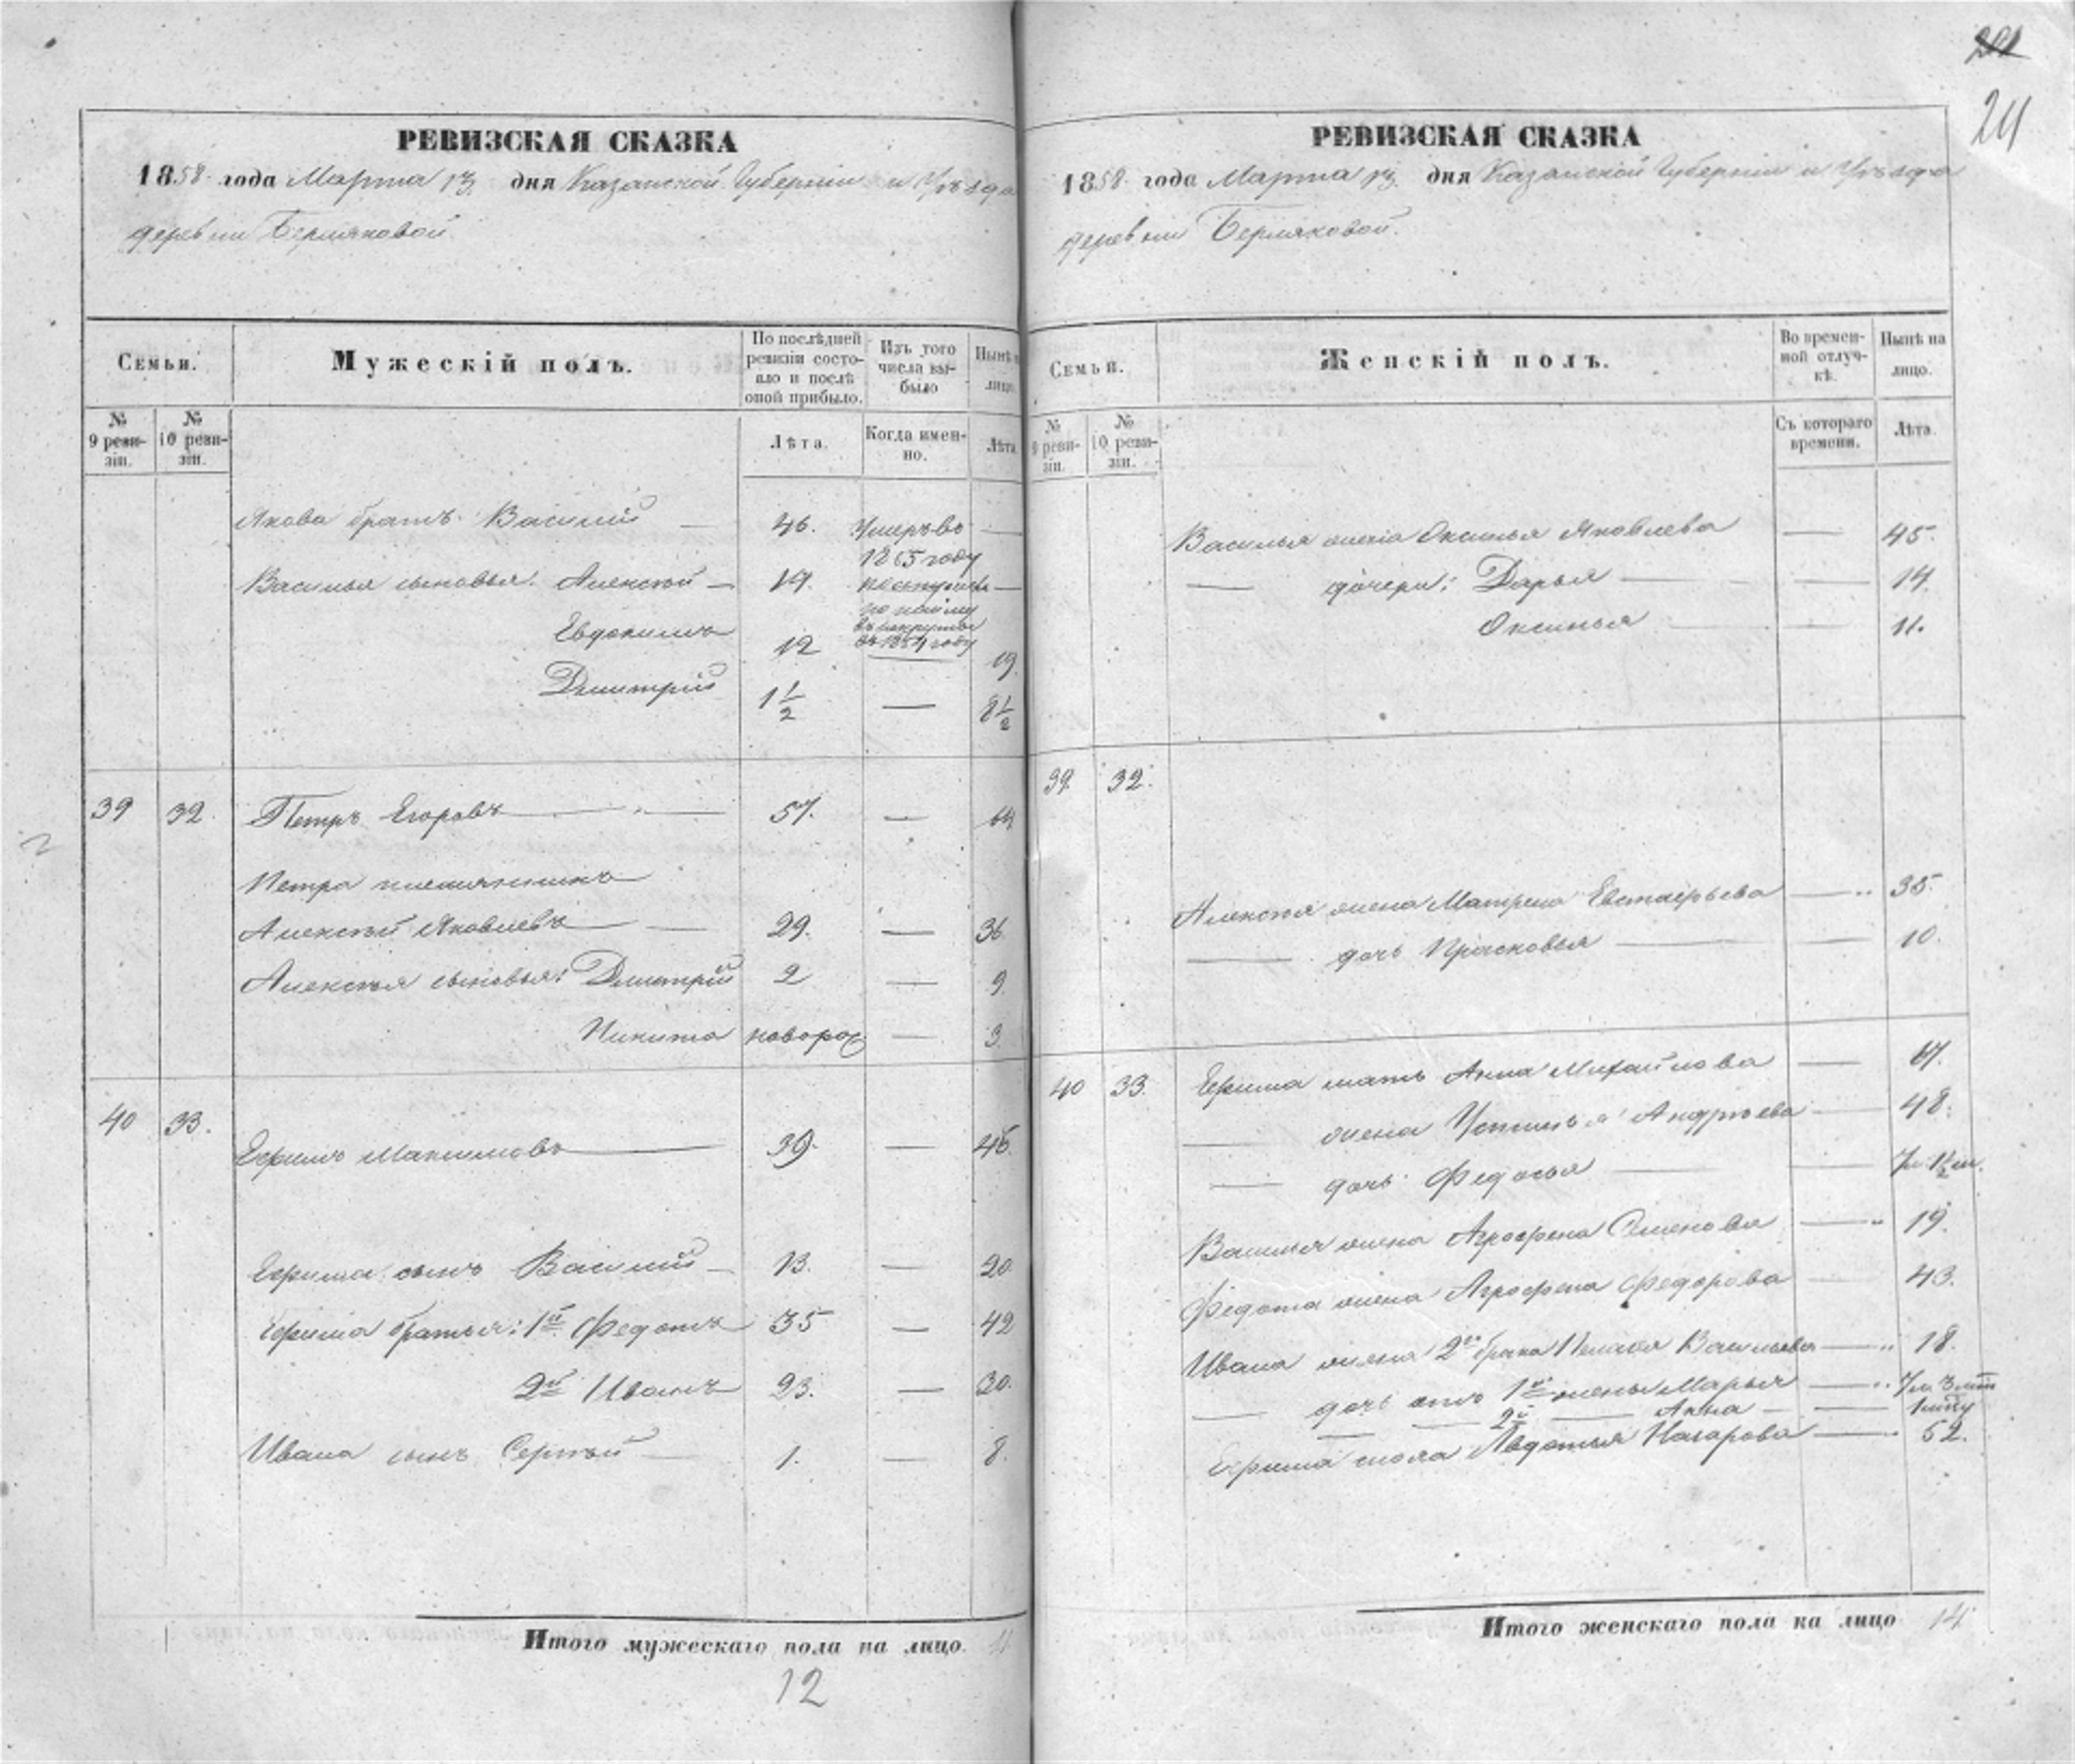 24
РЕВИЗСКАЯ СКАЗКА
1858 года Марта 13 дня Казанской Губерніи и Уѣзда
деревни Бермяковой
Семьи.
Мужескій полъ.
По послѣдней ревизіи состояло и послѣ оной прибыло.
Изъ того числа выбыло
Нынѣ на лицо.
№ 9 ревизіи.
№ 10 ревизіи.
Лѣта.
Когда именно.
Лѣта.
Якова братъ Василій — 46. Умеръ въ 1855 году —
Василья сыновья: Алексѣй — 19. поступилъ по найму въ рекруты въ 1854 году —
Евдокимъ 12 — 19.
Дмитрій 1 1/2 — 8 1/2
39 32. Петръ Егоровъ — 57. — 64
Петра племянникъ
Алексѣй Яковлевъ — 29. — 36
Алексѣя сыновья: Дмитрій 2 — 9.
Никита новорож — 3.
40 33. Ефимъ Максимовъ — 39. — 46.
Ефима сынъ Василій — 13. — 20
Ефима братья: 1й Федотъ 35 — 42
2й Иванъ 23. — 30.
Ивана сынъ Сергѣй — 1. — 8.
Итого мужескаго пола на лицо 11
12
РЕВИЗСКАЯ СКАЗКА
1858 года Марта 13 дня Казанской Губерніи и Уѣзда
деревни Бермяковой.
Семьи.
Женскій полъ.
Во временной отлучкѣ.
Нынѣ на лицо.
№ 9 ревизіи.
№ 10 ревизіи.
Съ котораго времени.
Лѣта.
Василья жена Оксинья Яковлева — 45.
— дочери: Дарья — 14.
Оксинья — 11.
39. 32.
Алексѣя жена Матрена Евстафьева — 35.
— дочь Прасковья — 10.
40 33. Ефима мать Анна Михайлова — 67.
— жена Устинья Андрѣева — 48.
— дочь Федосья — 7м 1 1/2 м.
Василья жена Аграфена Семенова — 19.
Федота жена Аграфена Федорова — 43.
Ивана жена 2го брака Пелагея Васильева — 18.
— дочь отъ 1й жены Марья — 7м
— 2й — Анна —
Ефима Авдотья Назарова — 52.
Итого женскаго пола на лицо 14